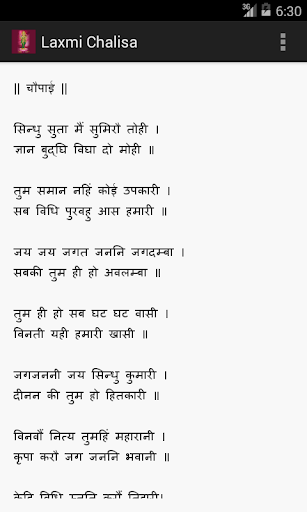 6:30
Laxmi Chalisa
|| चौपाई ||
सिन्धु सुता मैं सुमिरौ तोही ।
ज्ञान बुद्घि विघा दो मोही ॥
तुम समान नहिं कोई उपकारी ।
सब विधि पुरवहु आस हमारी ॥
जय जय जगत जननि जगदम्बा ।
सबकी तुम ही हो अवलम्बा ॥
तुम ही हो सब घट घट वासी ।
विनती यही हमारी खासी ॥
जगजननी जय सिन्धु कुमारी ।
दीनन की तुम हो हितकारी ॥
विनवौं नित्य तुमहिं महारानी ।
कृपा करौ जग जननि भवानी ॥